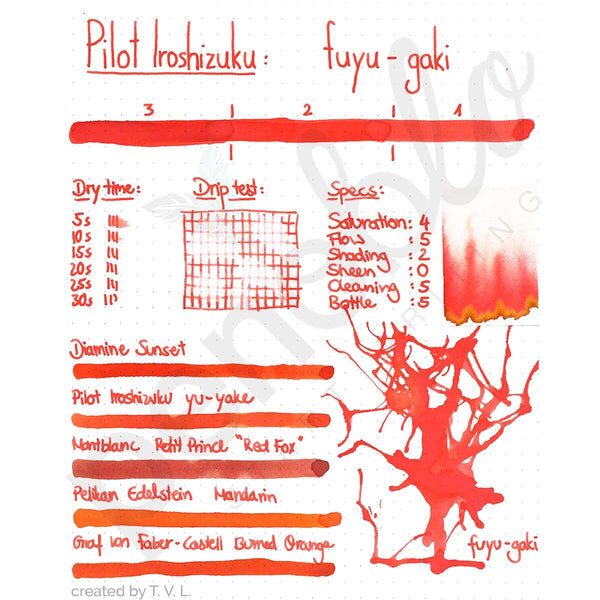 Pilot Iroshizuku: fuyu-gaki
3 2 1
Dry time:
5s
10s
15s
20s
25s
30s
Drip test:
Specs:
Saturation: 4
Flow : 5
Shading : 2
Sheen : 0
Cleaning : 5
Bottle : 5
Diamine Sunset
Pilot Iroshizuku yu-yake
Montblanc Petit Prince "Red Fox"
Pelikan Edelstein Mandarin
Graf von Faber-Castell Burned Orange
fuyu-gaki
created by T. V. L.